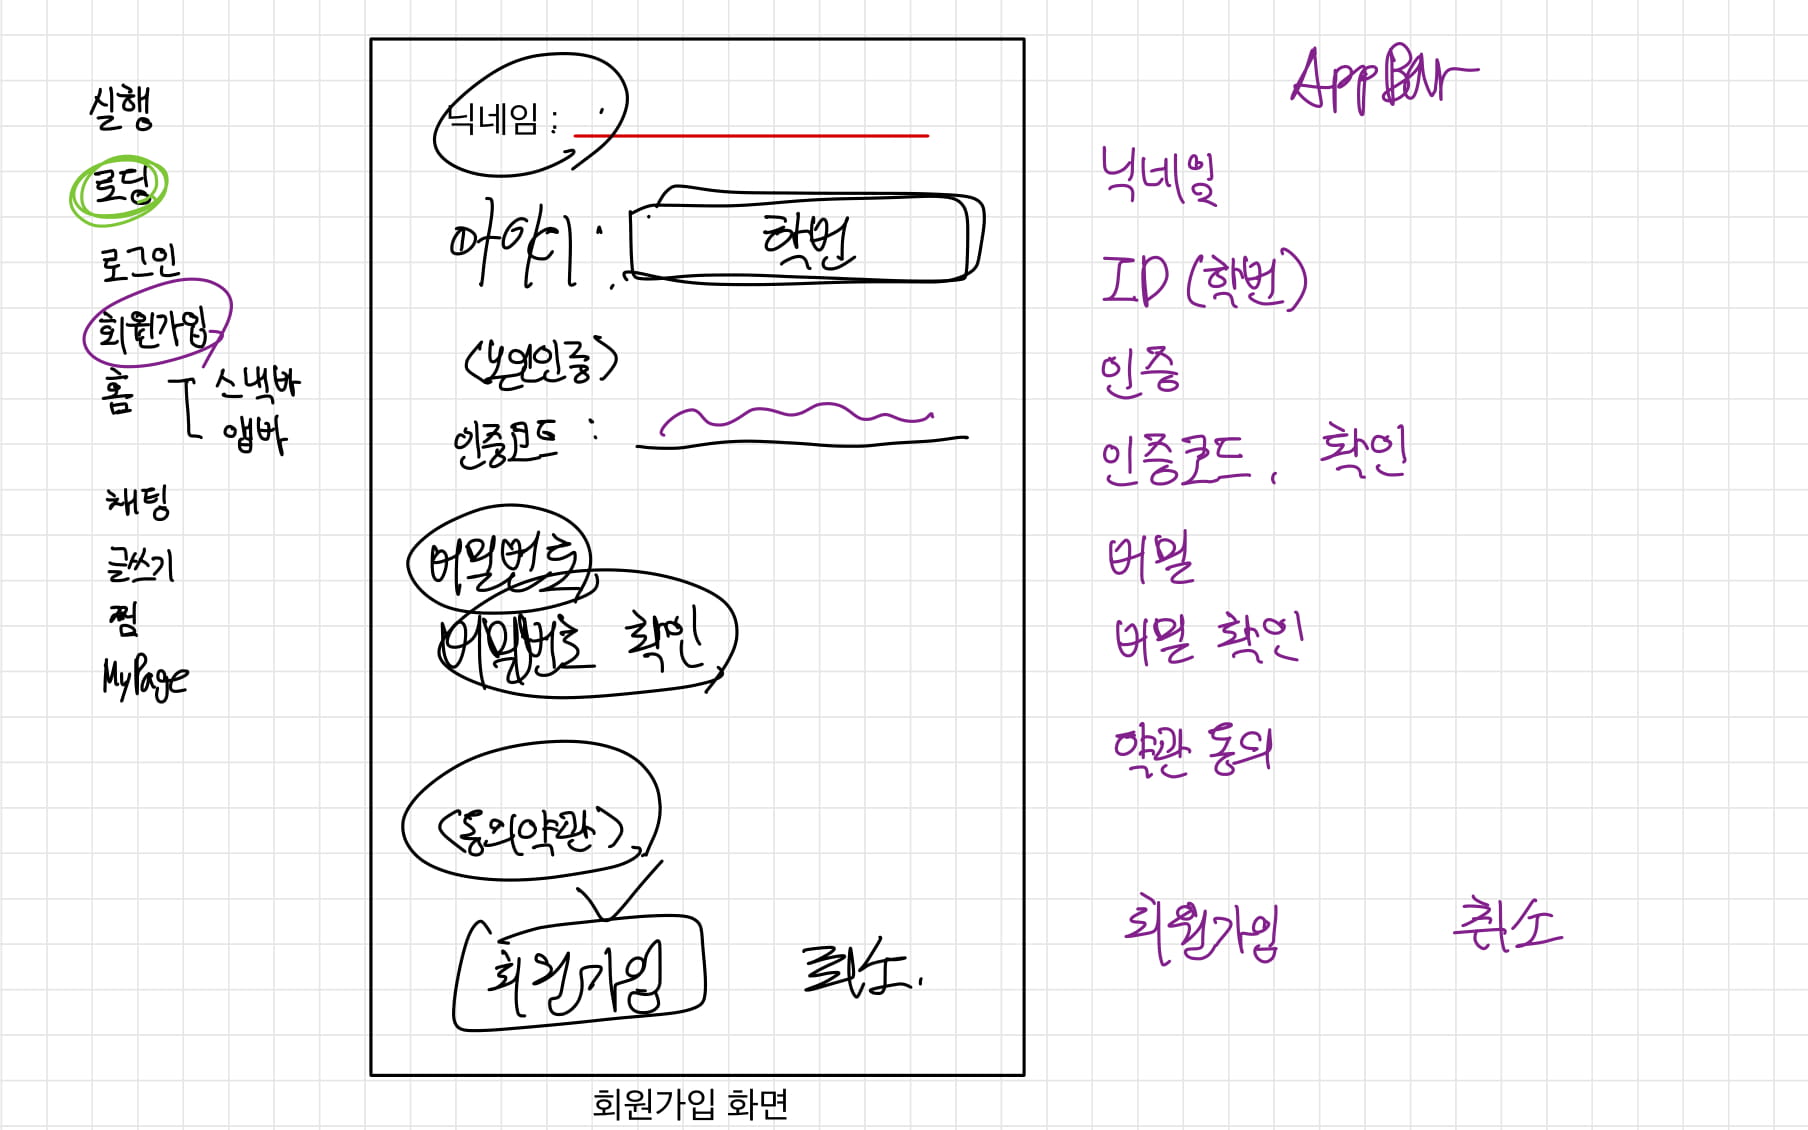 실행
로딩
로그인
회원가입
홈
스낵바
앱바
채팅
글쓰기
찜
MyPage
닉네임 :
아이디 : 학번
<본인인증>
인증코드 :
비밀번호
비밀번호 확인
<동의약관>
회원가입 취소.
회원가입 화면
AppBar
닉네임
ID (학번)
인증
인증코드, 확인
비밀
비밀 확인
약관 동의
회원가입 취소